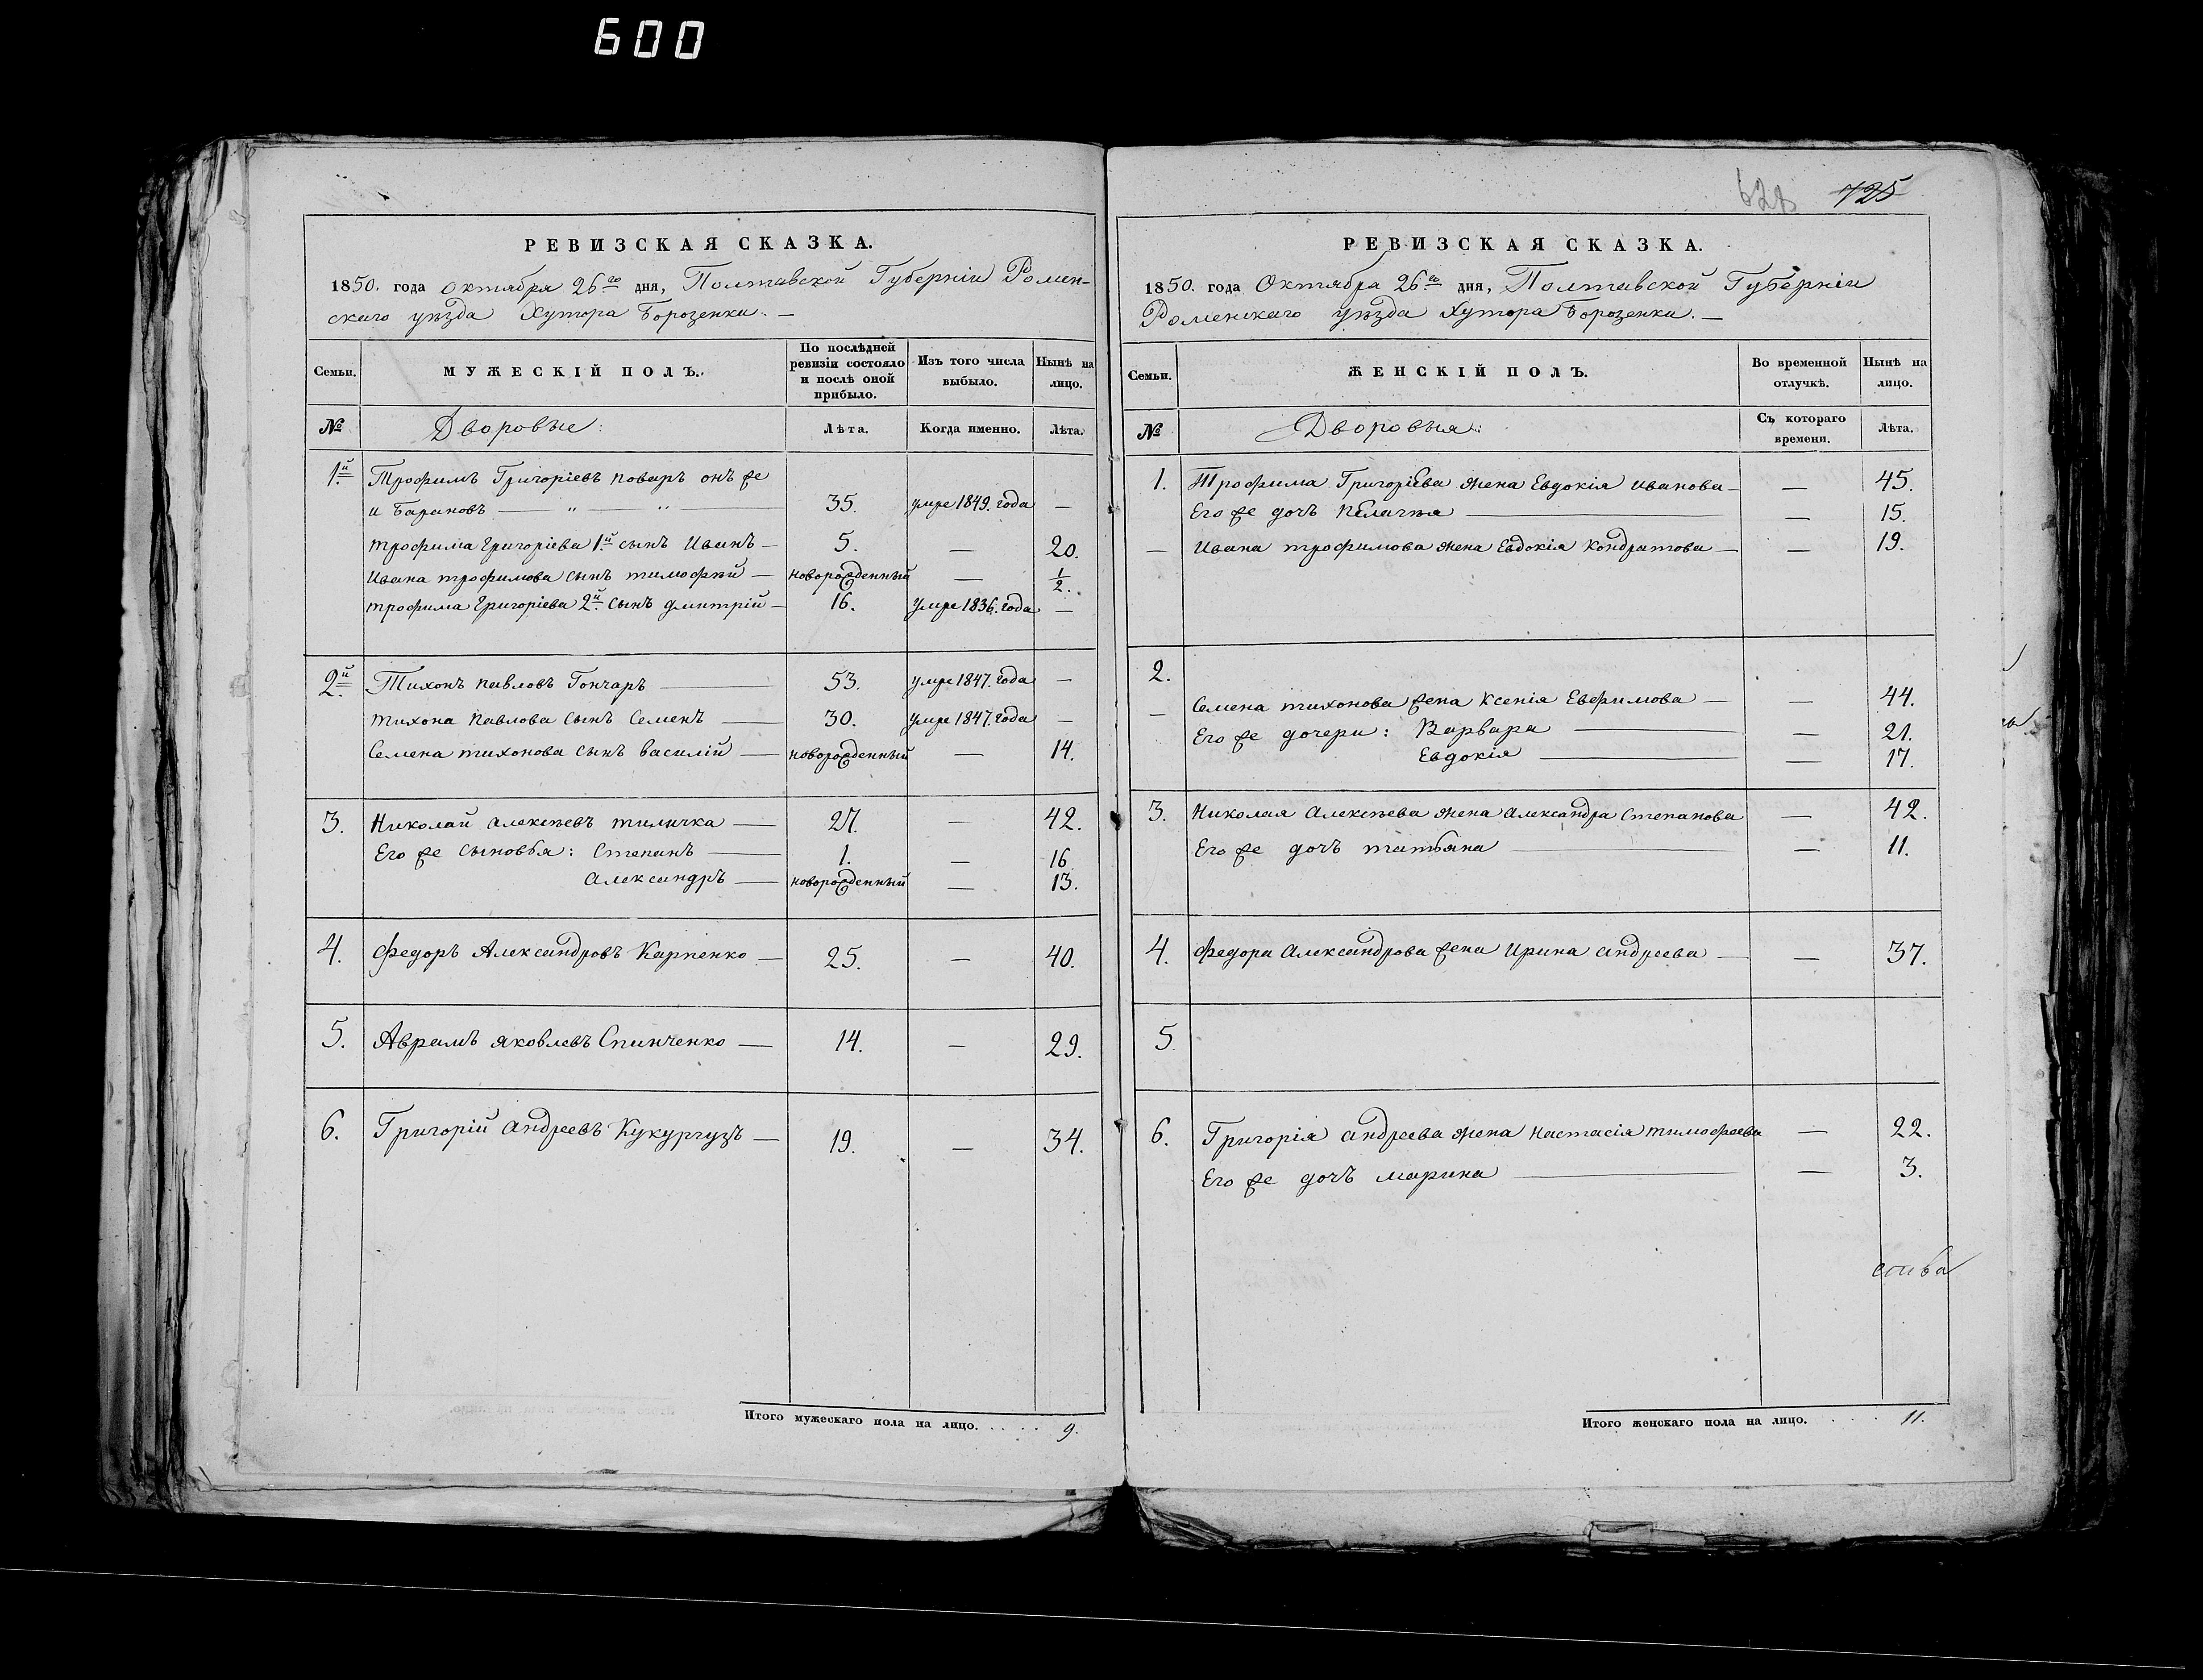 600
628 725
РЕВИЗСКАЯ СКАЗКА.
1850. года Октября 26го дня, Полтавской Губерніи Ромен-
скаго уѣзда Хутора Борозенки. —
Семьи. МУЖЕСКІЙ ПОЛЪ. По послѣдней ревизіи состояло и послѣ оной прибыло. Изъ того числа выбыло. Нынѣ на лицо.
№ Дворовые: Лѣта. Когда именно. Лѣта.
1й Трофимъ Григоріевъ поваръ онъ же
и Барановъ — " — " — 35. умре 1849. года —
трофима Григоріева 1й сынъ Иванъ — 5. — 20.
Ивана трофимова сынъ тимофѣй — новорожденный — 1/2.
трофима Григоріева 2й сынъ дмитрій — 16. Умре 1836. года —
2й Тихонъ павловъ Гончаръ — 53. умре 1847. года —
тихона павлова сынъ Семенъ — 30. умре 1847. года —
Семена тихонова сынъ василій — новорожденный — 14.
3. Николай алексѣевъ тиличка — 27. — 42.
Его же сыновья: Степанъ — 1. — 16
александръ — новорожденный — 13.
4. Федоръ Александровъ Карпенко — 25. — 40.
5. Аврамъ яковлевъ Спинченко — 14. — 29.
6. Григорій андреевъ Кукургузъ — 19. — 34.
Итого мужескаго пола на лицо. . . . . 9.
РЕВИЗСКАЯ СКАЗКА.
1850. года Октября 26го дня, Полтавской Губерніи
Роменскаго уѣзда Хутора Борозенки. —
Семьи. ЖЕНСКІЙ ПОЛЪ. Во временной отлучкѣ. Нынѣ на лицо.
№ Дворовыя: Съ котораго времени. Лѣта.
1. Трофима Григоріева жена Евдокія иванова — — 45.
Его же дочь пелагѣя — — 15.
— Ивана трофимова жена Евдокія кондратова — — 19.
2.
— Семена тихонова жена Ксенія Евфимова — — 44.
Его же дочери: Варвара — — 21.
Евдокія — — 17.
3. Николая Алексѣева жена Александра Степанова — 42.
Его же дочь татьяна — — 11.
4. Федора александрова жена Ирина андреева — — 37.
5
6. Григорія андреева жена настасія тимофеева — 22.
Его же дочь марина — — 3.
Итого женскаго пола на лицо. . . . . 11.